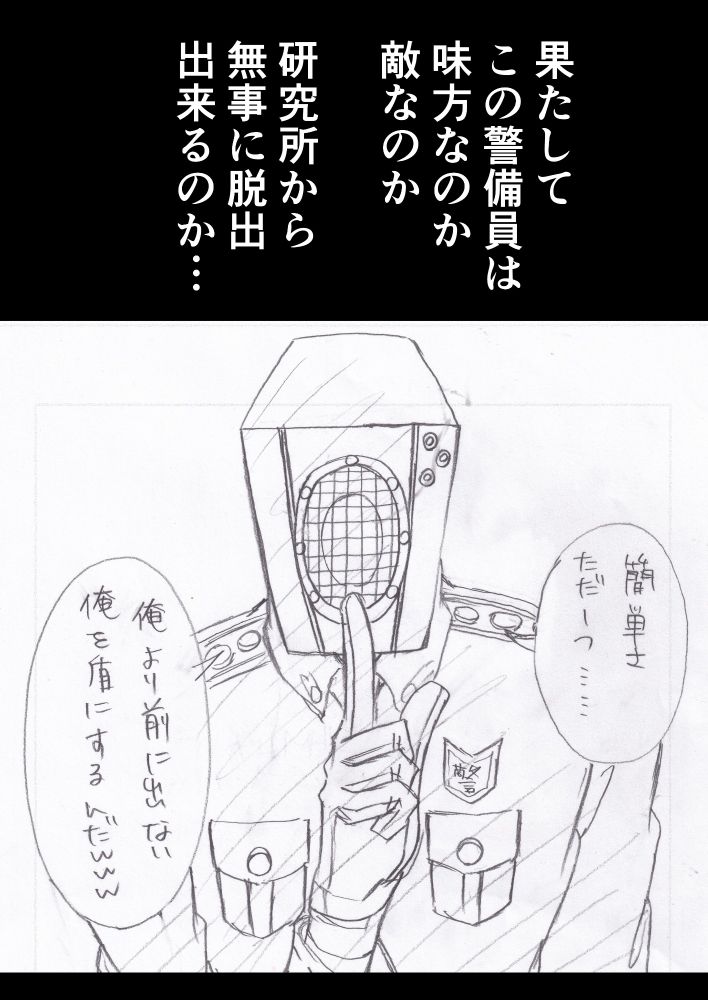 果たして
この警備員は
味方なのか
敵なのか
研究所から
無事に脱出
出来るのか…
簡単さ
ただ一つ……
俺より前に出ない
俺を盾にするんだwww
警